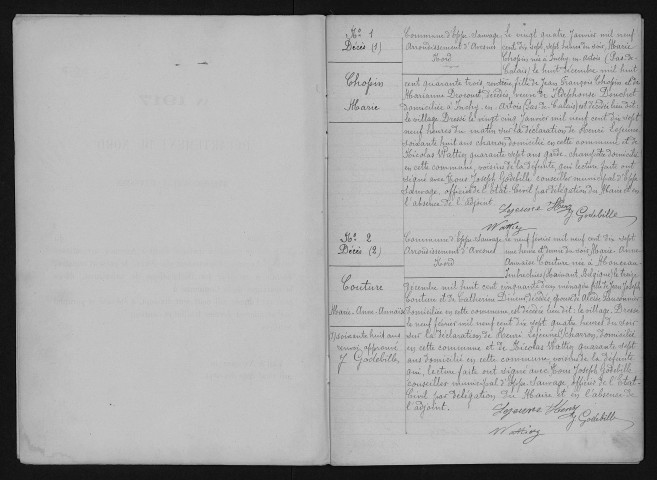 No 1
Décès (1)
Chopin
Marie
Commune d'Eppe-Sauvage, le vingt quatre Janvier mil neuf
Arrondissement d'Avesnes cent dix sept, sept heures du soir, Marie
Nord Chopin née à Inchy-en-Artois (Pas-de-
Calais) le huit Décembre mil huit
cent quarante trois, fille de Jean François Chopin et de
Marianne décédés, veuve de Alphonse
domiciliée à Inchy-en-Artois (Pas de Calais) est décédée lieu dit:
le village. Dressé le vingt cinq Janvier mil neuf cent dix sept
neuf heures du matin sur la déclaration de Henri Lejeune
soixante huit ans charron, domicilié en cette commune et de
Nicolas Wattiez quarante sept ans garde-champêtre domicilié
en cette commune, voisins de la défunte, qui lecture faite ont
signé avec Nous Joseph Godebille conseiller municipal d'Eppe
Sauvage, officier de l'Etat-Civil par délégation du Maire et en
l'absence de l'Adjoint.
Lejeune Henri J Godebille
Wattiez
No 2
Décès (2)
Couture
Marie-Anne-Annoise
soixante huit ans
renvoi approuvé
J Godebille
Commune d'Eppe-Sauvage le neuf février mil neuf cent dix sept
Arrondissement d'Avesnes une heure et demie du soir Marie-Anne
Nord Annoise Couture née à Monceau-
Imbrechies (Hainaut Belgique) le treize
Décembre mil huit cent cinquante deux ménagère fille de Jean Joseph
Couture et de Catherine décédés, épouse de Alexis
domiciliée en cette commune, est décédée lieu dit: le village. Dressé
le neuf février mil neuf cent dix sept quatre heures du soir
sur la déclaration de Henri Lejeune charron, domicilié
en cette commune et de Nicolas Wattiez quarante sept
ans domicilié en cette commune, voisins de la défunte
qui, lecture faite ont signé avec Nous Joseph Godebille
conseiller municipal d'Eppe-Sauvage officier de l'Etat-
Civil par délégation du Maire et en l'absence de
l'adjoint.
Lejeune Henri J Godebille
Wattiez